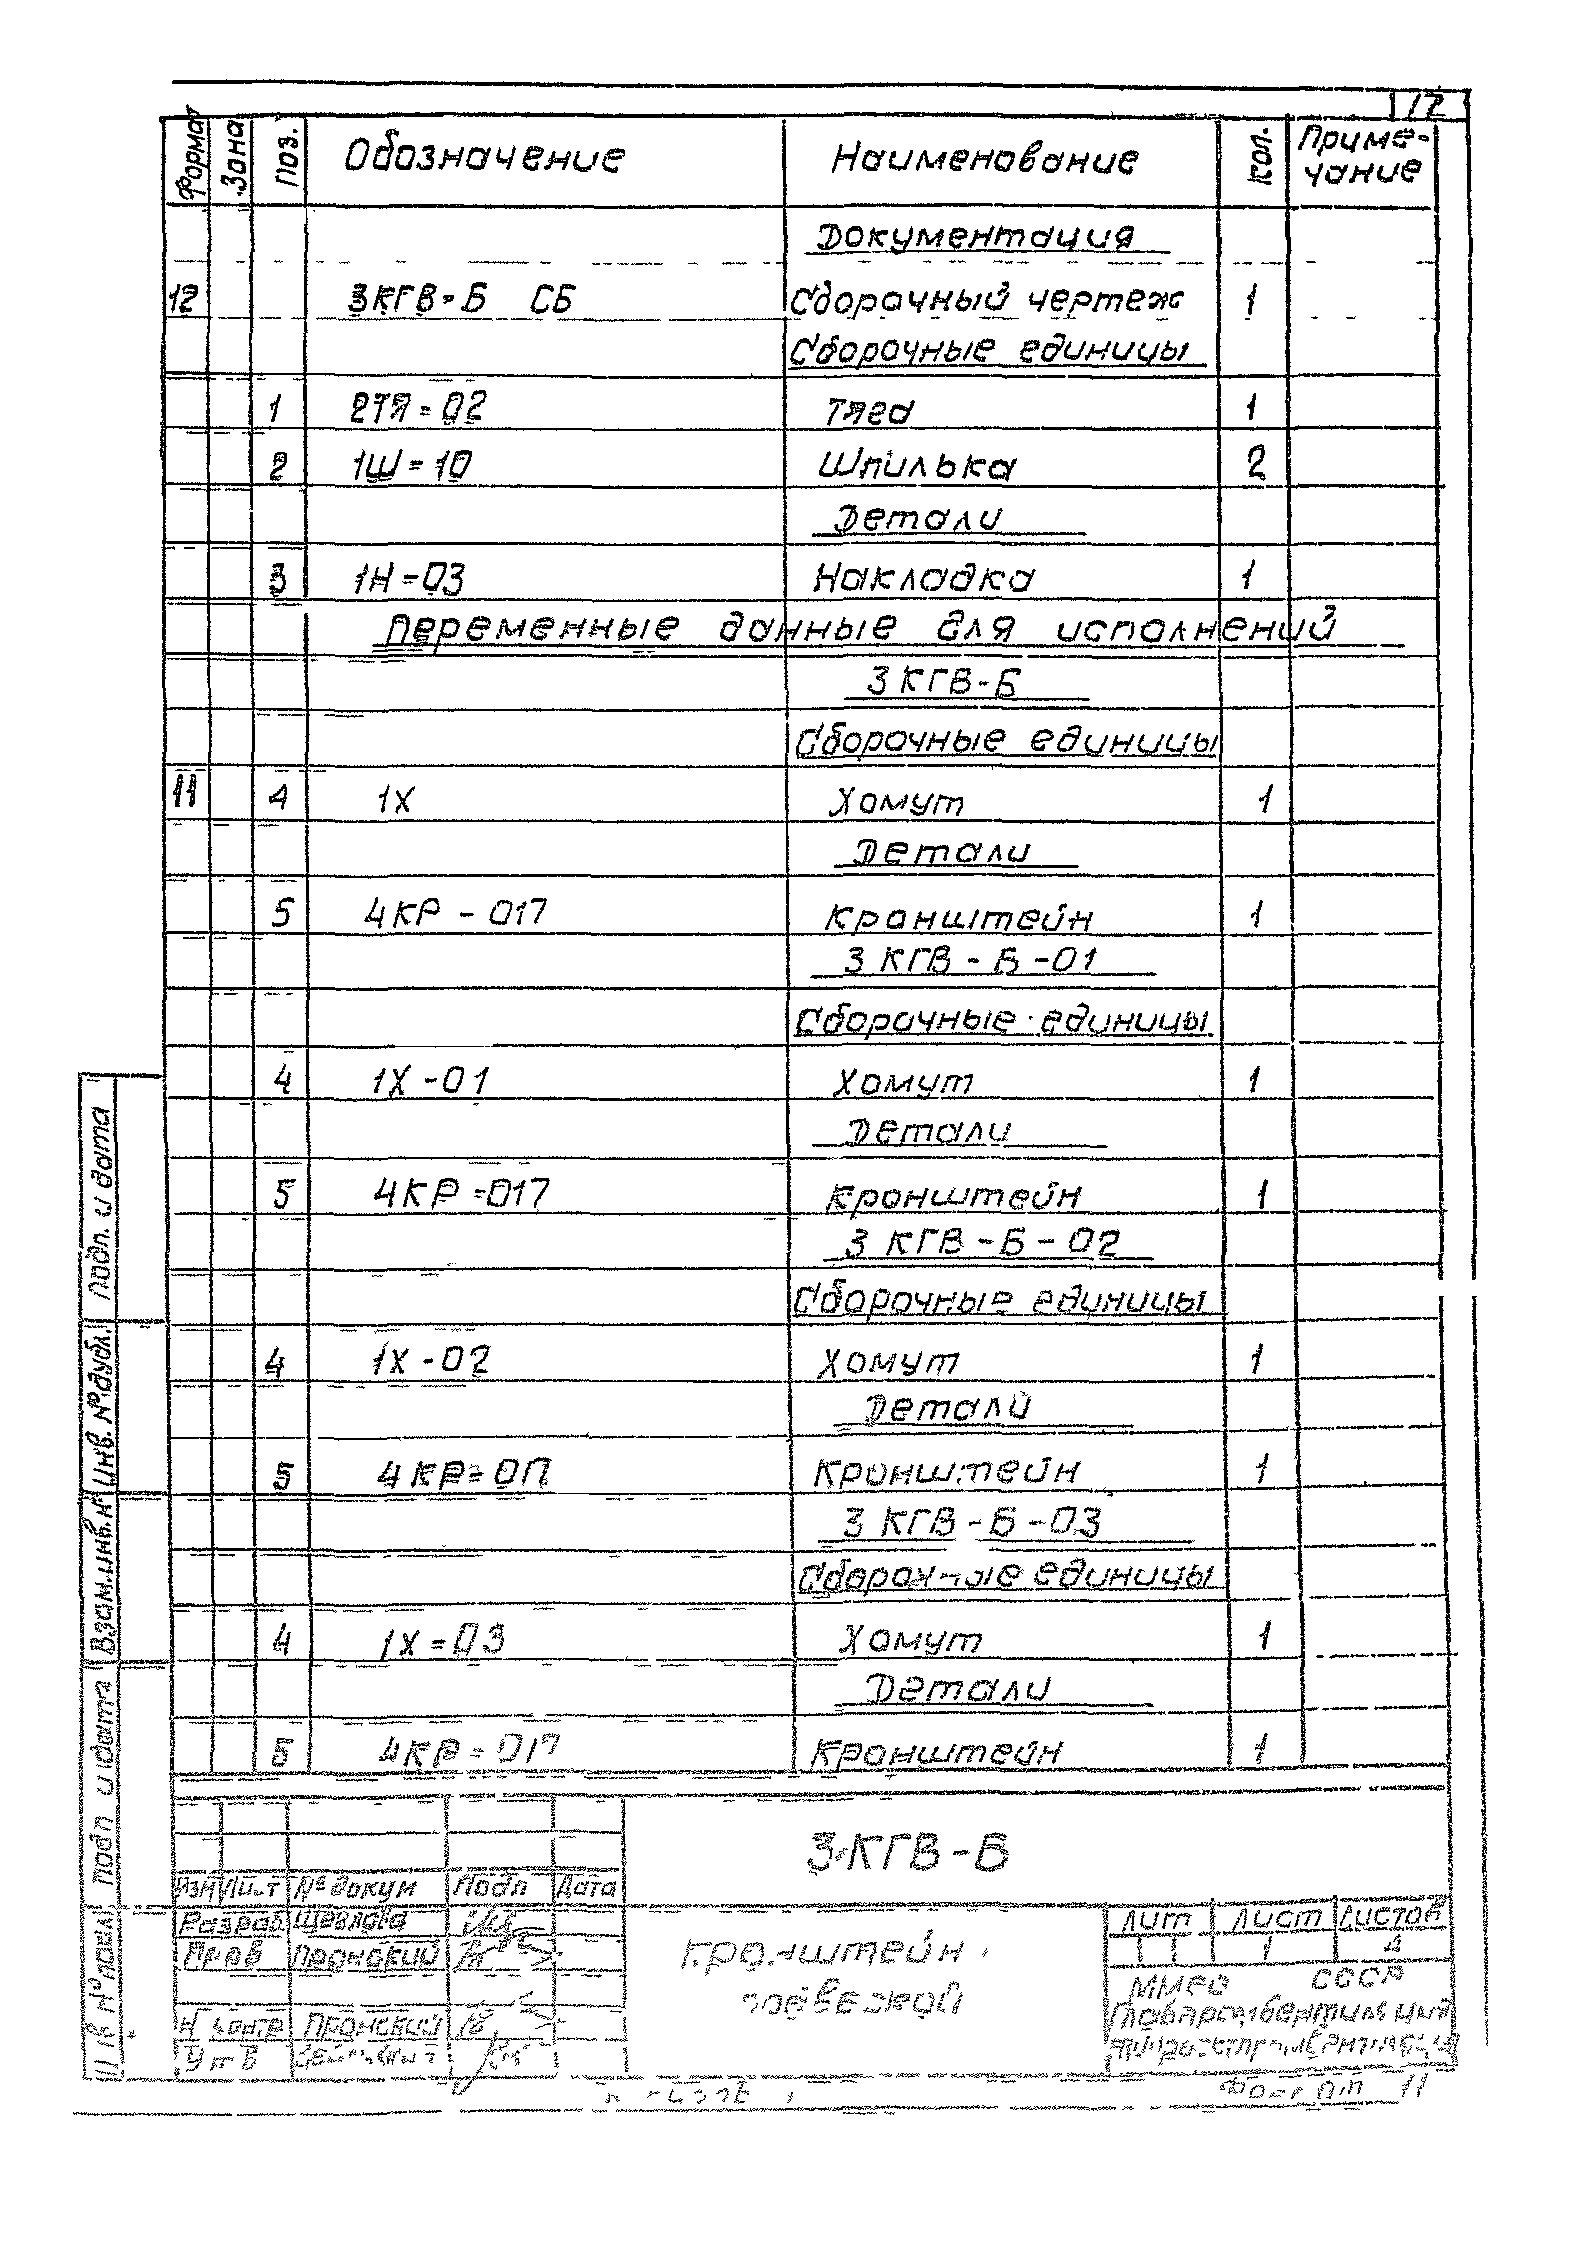 12
Формат Зона Поз. Обозначение Наименование Кол. Приме-
чание
Документация
12 3КГВ-Б СБ Сборочный чертеж 1
Сборочные единицы
1 2ТЯ=02 Тяга 1
2 1Ш=10 Шпилька 2
Детали
3 1Н=03 Накладка 1
Переменные данные для исполнений
3КГВ-Б
Сборочные единицы
11 4 1Х Хомут 1
Детали
5 4КР-017 Кронштейн 1
3КГВ-Б-01
Сборочные единицы
4 1Х-01 Хомут 1
Детали
5 4КР=017 Кронштейн 1
3КГВ-Б-02
Сборочные единицы
4 1Х-02 Хомут 1
Детали
5 4КР=017 Кронштейн 1
3КГВ-Б-03
Сборочные единицы
4 1Х=03 Хомут 1
Детали
5 4КР=017 Кронштейн 1
Подп. и дата
Инв. № дубл.
Взам. инв. №
Подп и дата
3КГВ-Б
Изм Лист № докум Подп Дата
Разраб Щеглова
Пров Пронский
Н контр Пронский
Утв
Кронштейн
Лит Лист Листов
1 4
ММСС СССР
Формат 11